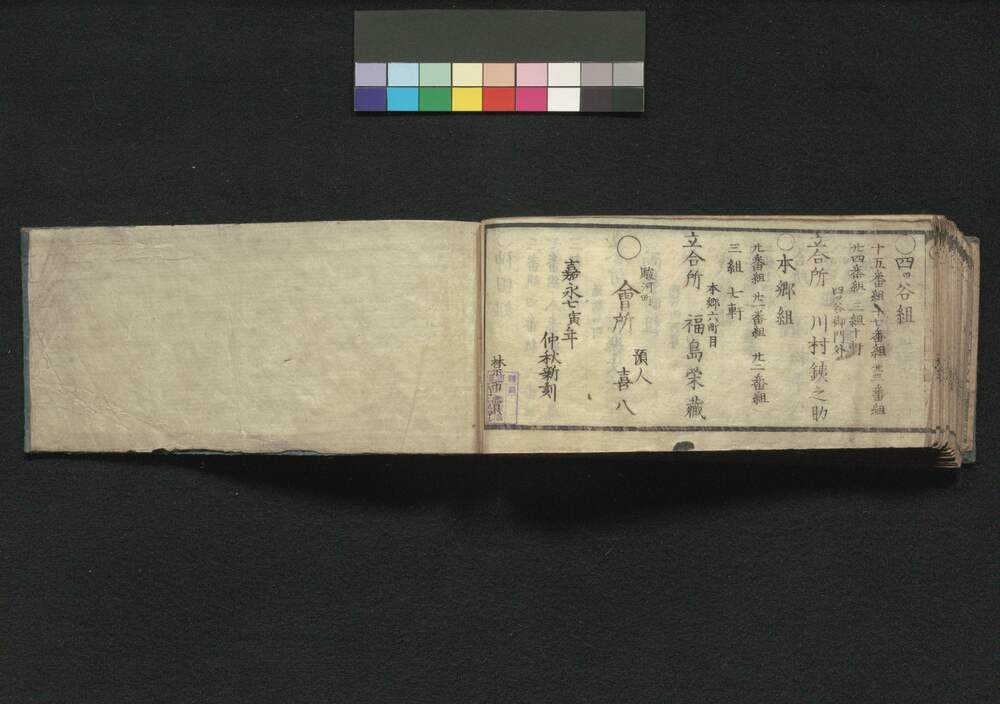 〇四ツ谷組
十五番組 十七番組 廿三番組
廿四番組 三組十軒
四ツ谷御門外
立合所 川村鋏之助
〇本郷組
廿番組 廿一番組 廿二番組
三組 七軒
本郷六町目
立合所 福島栄蔵
〇會所
駿河町
預人 喜八
嘉永七寅年
仲秋新刻